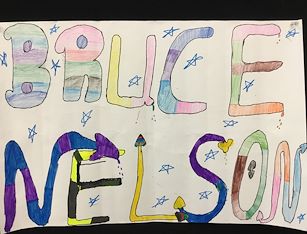 BRUCE
NELSON